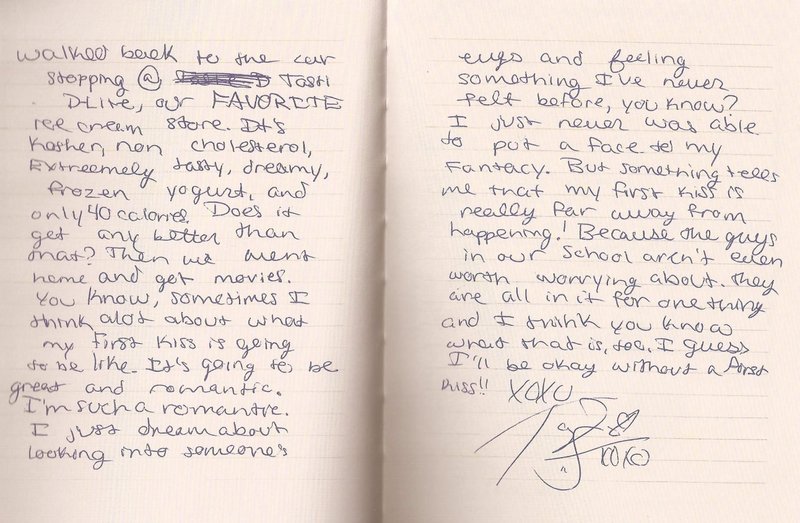 walked back to the car
stopping @ Tasti
DLite, our FAVORITE
ice cream store. It's
Kosher, non cholesterol,
Extreemely tasty, dreamy,
frozen yogurt, and
only 40 calories. Does it
get any better than
that? Then we went
home and got movies.
You know, sometimes I
think alot about what
my first kiss is going
to be like. It's going to be
great and romantic.
I'm such a romantic.
I just dream about
looking into someone's
eyes and feeling
something I've never
felt before, you know?
I just never was able
to put a face to my
Fantacy. But something tells
me that my first kiss is
really far away from
happening! Because the guys
in our school aren't even
worth worrying about. They
are all in it for one thing
and I think you know
what that is, too. I guess
I'll be okay without a first
kiss!! XOXO
XOXO